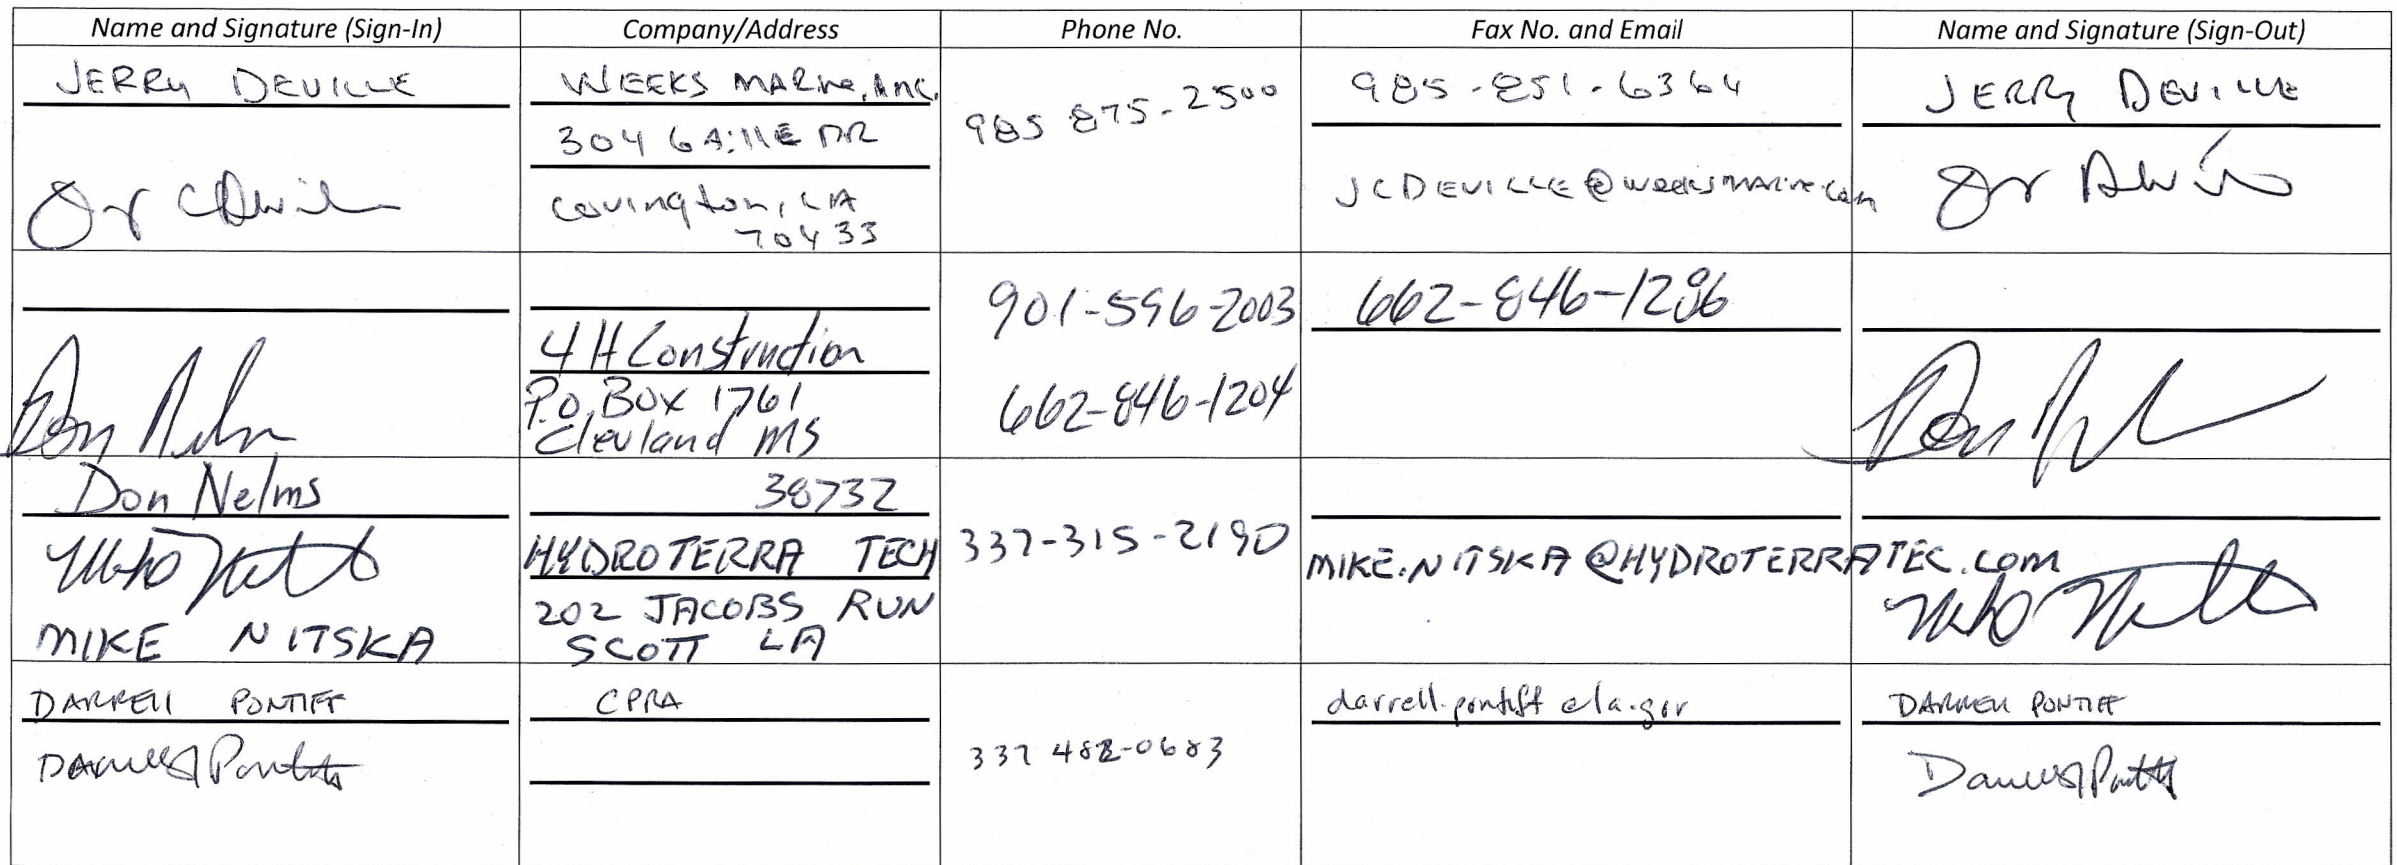 Name and Signature (Sign-In)
Company/Address
Phone No.
Fax No. and Email
Name and Signature (Sign-Out)
JERRY DEVILLE
WEEKS MARINE, INC.
304 GAILLE DR
Covington, LA
70433
985 875-2500
985-851-6364
JCDEVILLE@weeksmarine.com
JERRY DEVILLE
4H Construction
P.O. Box 1761
Clevland MS
38732
901-596-2003
662-846-1204
662-846-1286
Don Nelms
MIKE NITSKA
HYDROTERRA TECH
202 JACOBS RUN
SCOTT LA
337-315-2190
MIKE.NITSKA@HYDROTERRATEC.COM
DARRELL PONTIFF
CPRA
337 482-0683
darrell.pontiff@la.gov
DARRELL PONTIFF